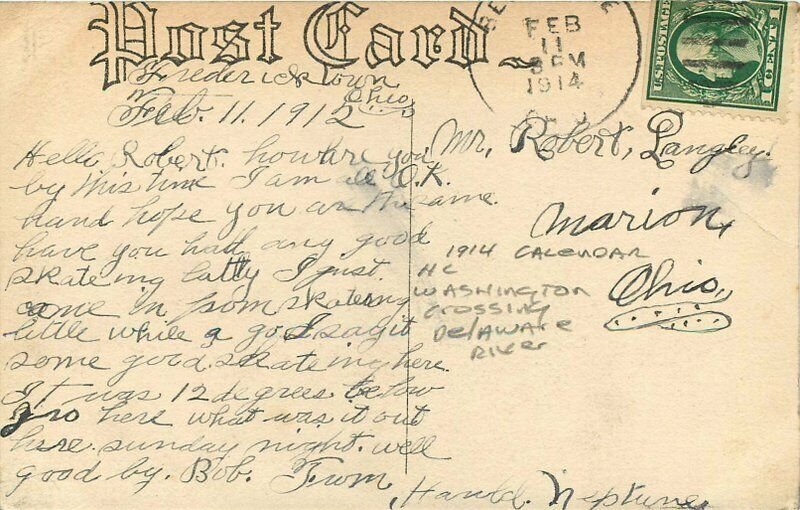 Post Card
FEB
11
3 PM
1914
U.S. POSTAGE
1 CENT 1
Fredericktown
Ohio
Feb. 11. 1912
Hello Robert. how are you
by this time I am all O.K.
hand hope you are the same.
have you hatt any good
skateing latly I just
came in from skateing
little while a go. I say it
some good. skateing here.
It was 12 degrees below
zro here what was it out
here. sunday night. well
good by. Bob. From
Harold. Neptune
Mr. Robert, Langley.
Marion,
Ohio.
1914 CALENDAR
HC
WASHINGTON
CROSSING
DELAWARE
RIVER